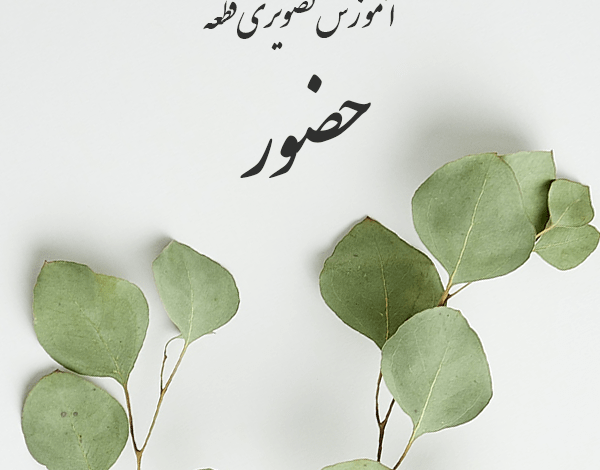 آموزش تصویری قطعه
حضور